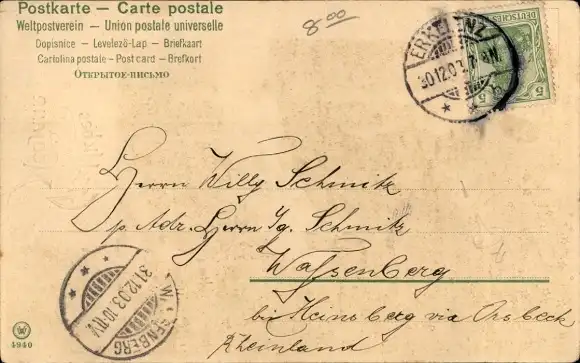 Postkarte – Carte postale
Weltpostverein – Union postale universelle
Dopisnice – Levelező-Lap – Briefkaart
Cartolina postale – Post card – Brefkort
Открытое-письмо
8 00
DEUTSCHES
5 5
ERKELENZ
30.12.03. 7. N.
* * b
Herrn Willy Schmitz
p. Adr. Herrn Jg. Schmitz
Wassenberg
bei Heinsberg via Orsbeck
Rheinland
31.12.03.10-11.V.
4940